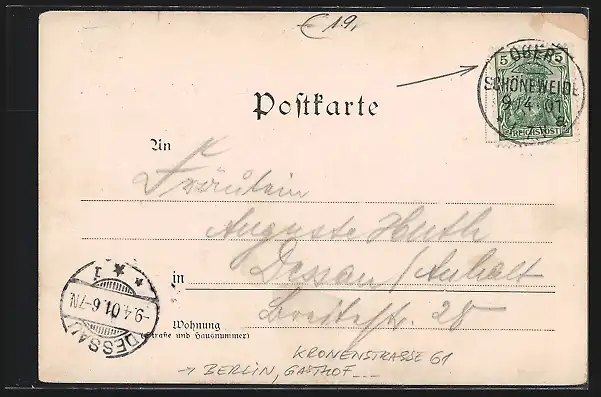 € 19,
5 5
REICHSPOST
OBER-
SCHÖNEWEIDE
9/4 01
a
Postkarte
An
Fräulein
Auguste Huth
in Dessau/Anhalt
Breitestr. 28
Wohnung
(Straße und Hausnummer)
* * * 1
-9.4.01.6-7N.
DESSAU
KRONENSTRASSE 61
→ BERLIN, GASTHOF...